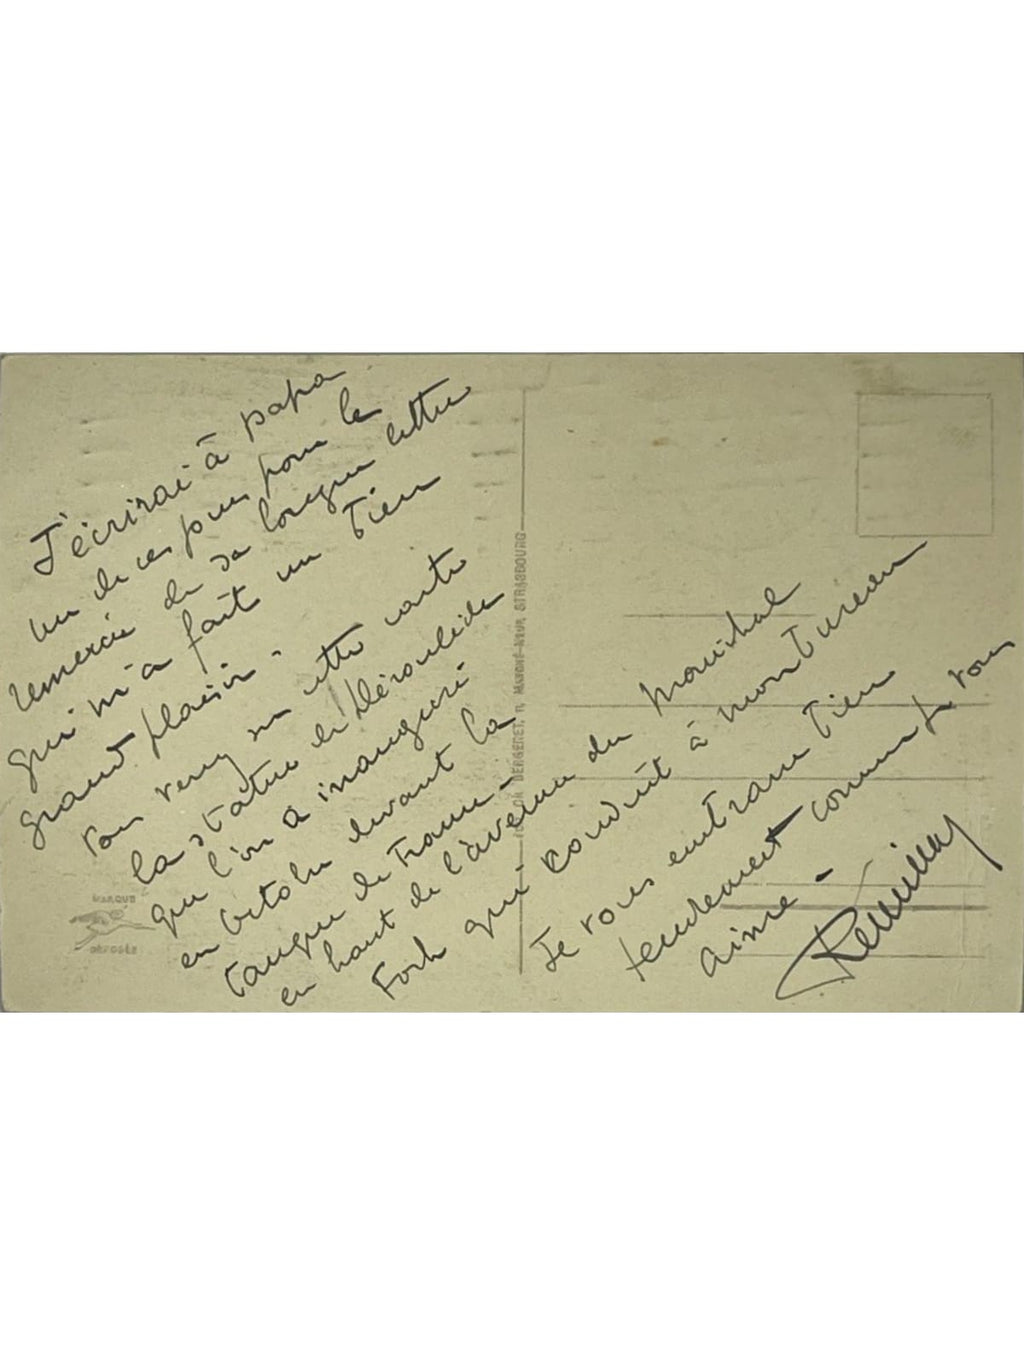 J'écrirai à papa
un de ces jours pour le
remercier de sa longue lettre
qui m'a fait un bien
grand plaisir.
Vous verrez sur cette carte
la statue de Déroulède
que l'on a inauguré
en octobre devant la
banque de France -
en haut de l'avenue du Maréchal
Foch qui conduit à mon bureau
Je vous embrasse bien
tendrement comme je vous
aime -
BERGERET, MARCHÉ-NEUF, STRASBOURG
MARQUE
DÉPOSÉE